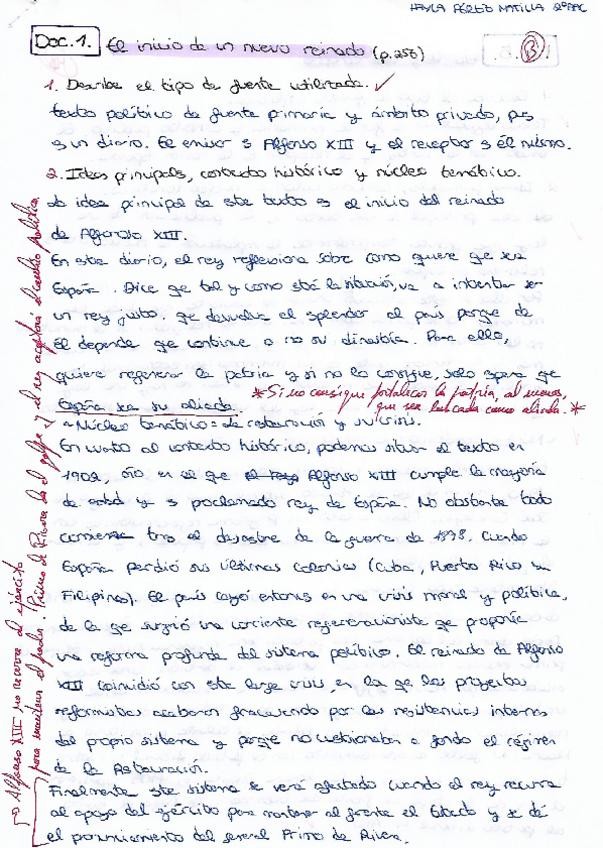 Doc.1. El inicio de un nuevo reinado (p.256) B
1. Describe el tipo de fuente utilizada. ✓
texto político de fuente primaria y ámbito privado, pues
es un diario. El emisor es Alfonso XIII y el receptor es él mismo.
2. Ideas principales, contexto histórico y núcleo temático.
La idea principal de este texto es el inicio del reinado
de Alfonso XIII.
En este diario, el rey reflexiona sobre como quiere que sea
España. Dice que tal y como está la situación, va a intentar ser
un rey justo. que devuelva el esplendor al país porque de
él depende que continúe o no su dinastía. Para ello
quiere regenerar la patria y si no lo consigue, solo espera que
España sea su aliada. *Si no consigue fortalecer la patria, al menos,
que sea buscada como aliada.*
~ Núcleo temático = La restauración y su crisis.
En cuanto al contexto histórico, podemos situar el texto en
1902, año en el que el rey Alfonso XIII cumple la mayoría
de edad y es proclamado rey de España. No obstante todo
comienza tras el desastre de la guerra de 1898. Cuando
España perdió sus últimas colonias (Cuba, Puerto Rico y
Filipinas). El país cayó entonces en una crisis moral y política,
de la que surgió una corriente regeneracionista que proponía
una reforma profunda del sistema político. El reinado de Alfonso
XIII coincidió con esta larga crisis, en la que los proyectos
reformistas acabaron fracasando por las resistencias internas
del propio sistema y porque no cuestionaban a fondo el régimen
de la Restauración.
Finalmente este sistema se verá afectado cuando el rey recurra
al apoyo del ejército para mantener al frente el Estado y se dé
el pronunciamiento del general Primo de Rivera.
→ Alfonso XIII no recurre al ejército
para mantener el poder. Primo de Rivera da el golpe y el rey aceptará el cambio político.